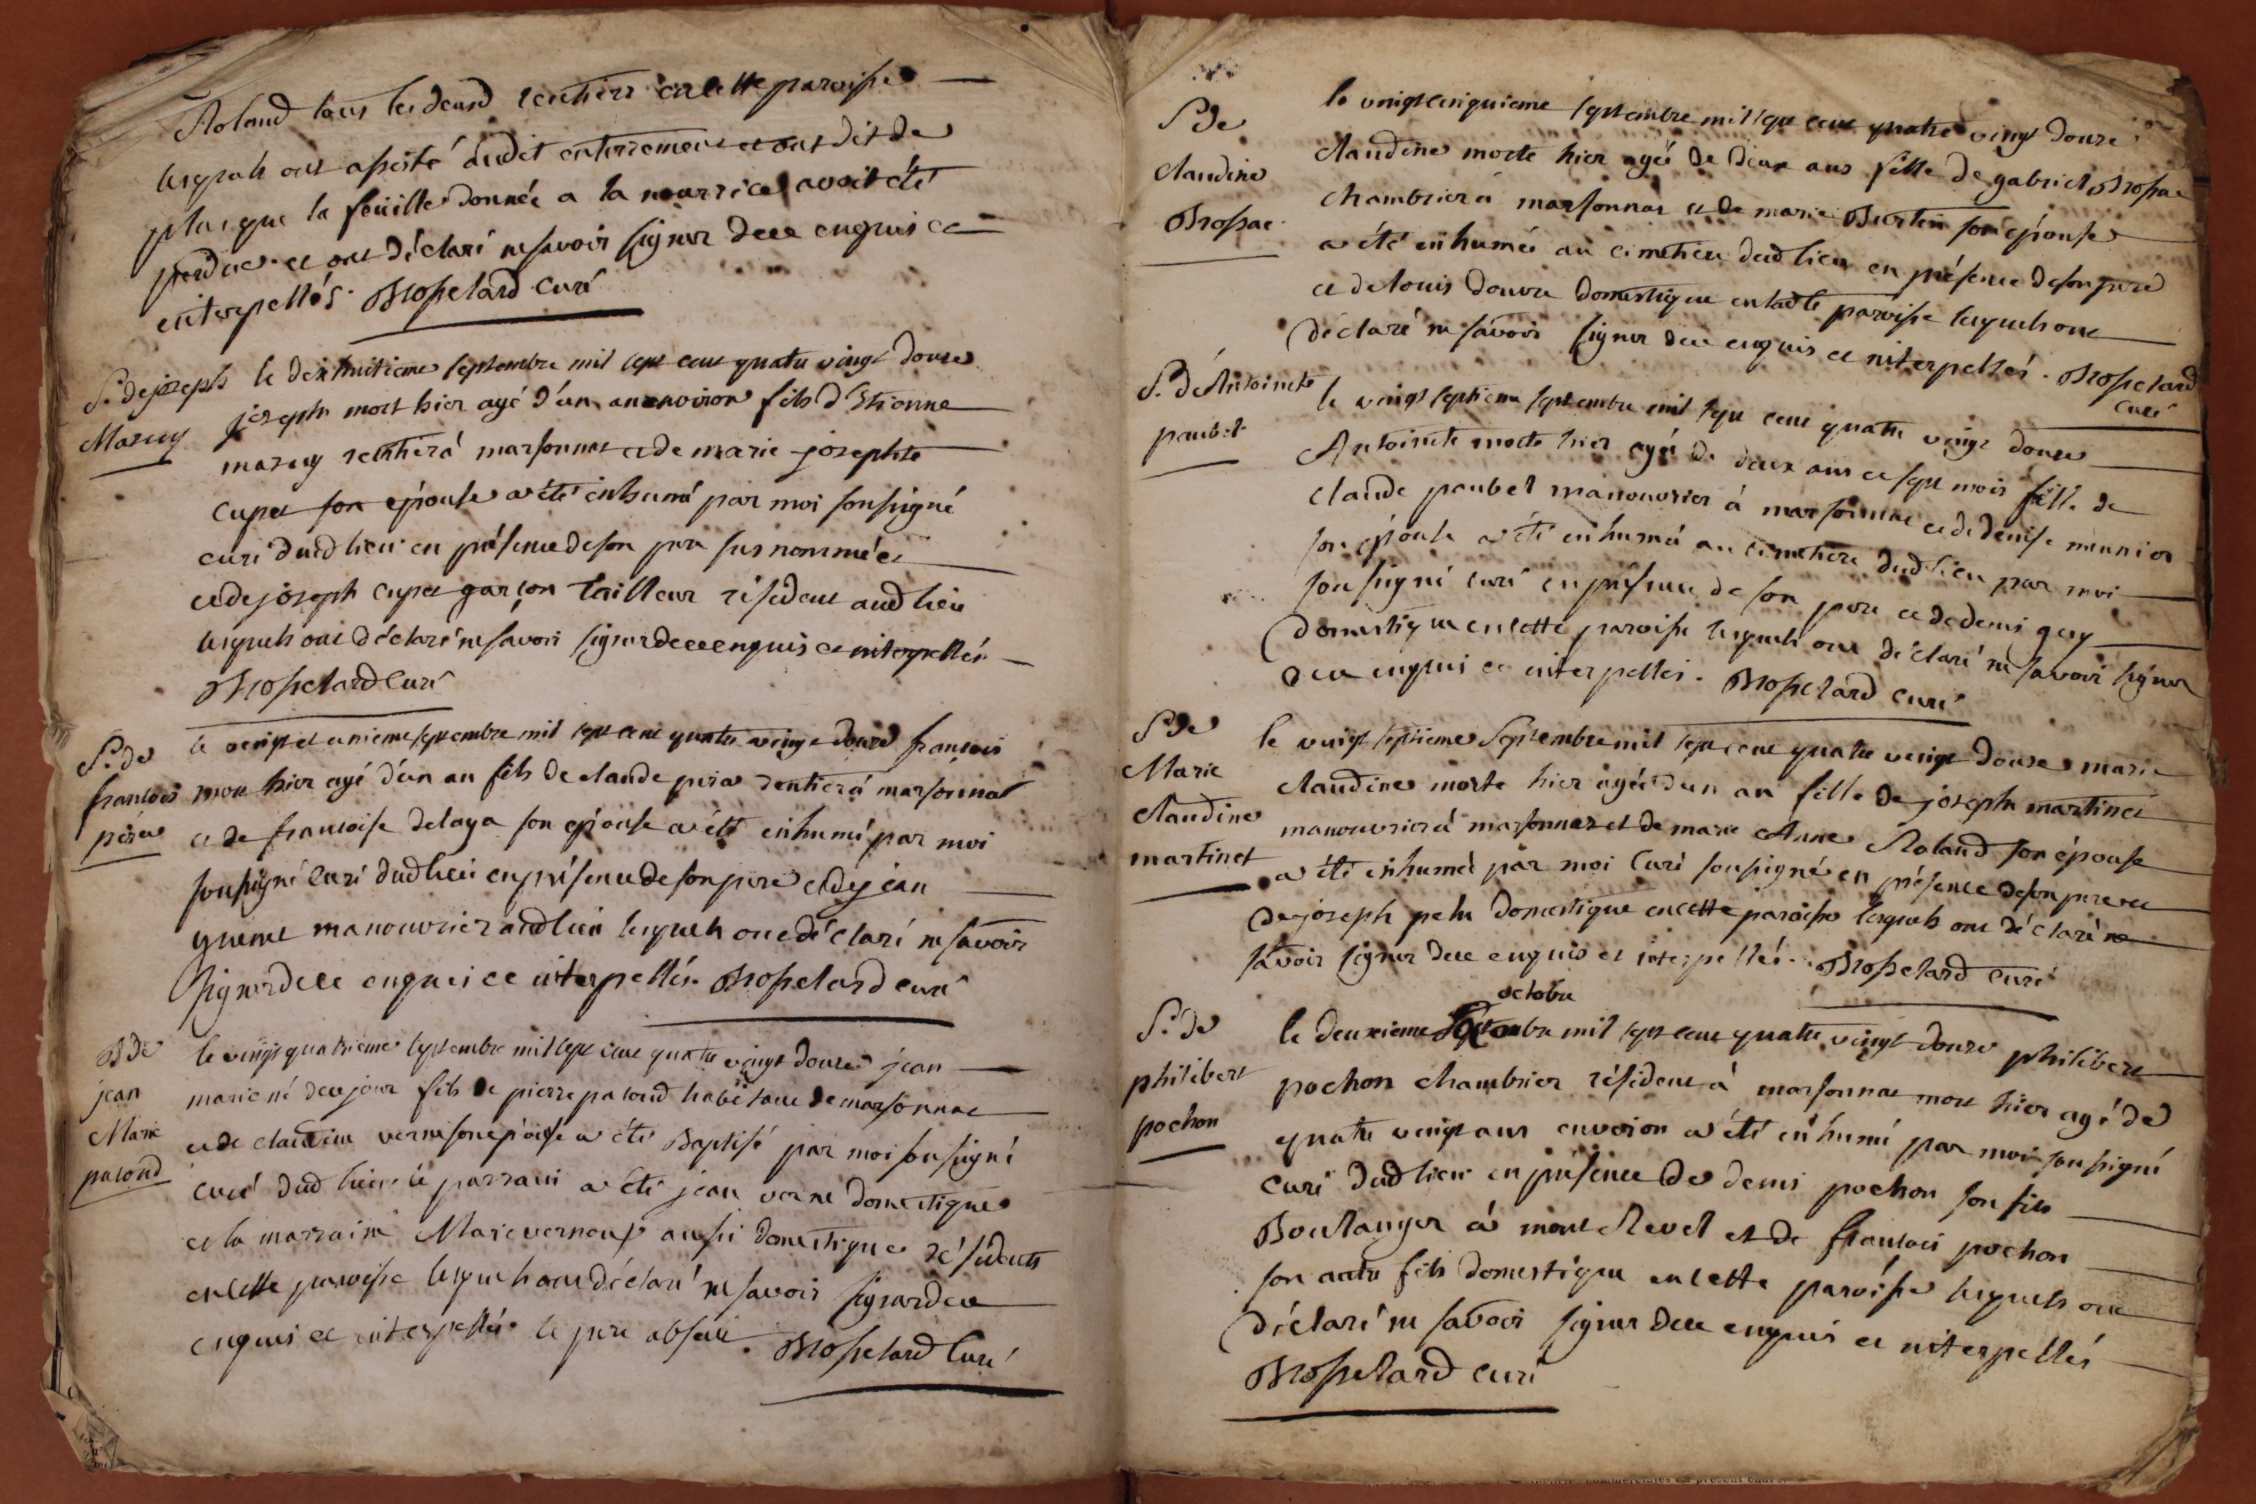 Roland tous les deux rentiers en cette paroisse
lesquels ont assisté audit enterrement et ont dit de
plus que la feuille donnée a la nourrice avoit été
perdue et ont déclaré ne savoir signer de ce enquis et
interpellés. Brosselard curé
S. de joseph
Mazuy
le dixhuitieme septembre mil sept cent quatre vingt douze
joseph mort hier agé d'un an environ fils d'Etienne
mazuy rentier á marsonnas et de marie josephte
cupet son épouse a été inhumé par moi soussigné
curé dud lieu en présence de son pere susnommé et
et de joseph cupet garçon tailleur résident aud lieu
lesquels ont déclaré ne savoir signer de ce enquis et interpellés
Brosselard curé
S. de
francois
péra
le vingt et unieme septembre mil sept cent quatre vingt douze francois
mort hier agé d'un an fils de claude pera rentier á marsonnas
et de francoise delaya son épouse a été inhumé par moi
soussigné curé dud lieu en présence de son pere et de jean
manouvrier aud lieu lesquels ont déclaré ne savoir
signer de ce enquis et interpellés. Brosselard curé
B de
jean
Marie
palond
le vingt quatrieme septembre mil sept cent quatre vingt douze jean
marie né de ce jour fils de pierre palond habitant de marsonnas
et de claudine verne son épouse a été Baptisé par moi soussigné
curé dud lieu le parrain a été jean verne domestique
et la marraine Marie vernoux aussi domestique résidents
en cette paroisse lesquels ont déclaré ne savoir signer de ce
enquis et interpellés le pere absent. Brosselard Curé
S de
claudine
Brossac
le vingtcinquieme septembre mil sept cent quatre vingt douze
claudine morte hier agée de deux ans fille de gabriel Brossac
chambrier á marsonnas et de marie Burtin son épouse
a été inhumée au cimetiere dud lieu en présence de son pere
et de louis douvre domestique en ladte paroisse lesquels ont
déclaré ne savoir signer de ce enquis et interpellés. Brosselard
curé
S. de Antoinete
paubel
le vingt septieme septembre mil sept cent quatre vingt douze
Antoinete morte hier agée de deux ans et sept mois fille de
claude paubel manouvrier à marsonnas et de denise munier
son épouse a été inhumée au cimetiere dud lieu par moi
soussigné curé en présence de son pere et de denis guy
domestique en cette paroisse lesquels ont déclaré ne savoir signer
de ce enquis et interpellés. Brosselard curé
S de
Marie
claudine
martinet
le vingt septieme Septembre mil sept cent quatre vingt douze marie
claudine morte hier agée d'un an fille de joseph martinet
manouvrier á marsonnas et de marie Anne Roland son épouse
a été inhumée par moi curé soussigné en présence de son pere et
de joseph pelu domestique en cette paroisse lesquels ont déclaré ne
savoir signer de ce enquis et interpellés. Brosselard curé
S. de
philibert
pochon
octobre
le deuxieme mil sept cent quatre vingt douze philibert
pochon chambrier résident á marsonnas mort hier agé de
quatre vingt ans environ a été inhumé par moi soussigné
curé dud lieu en présence de denis pochon son fils
Boulanger á mont Revel et de francois pochon
son autre fils domestique en cette paroisse lesquels ont
déclaré ne savoir signer de ce enquis et interpellés
Brosselard curé